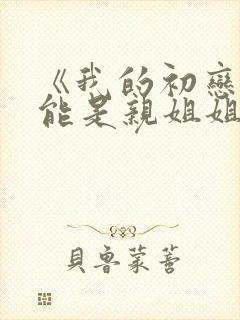 《我的初戀
能是親姐姐
貝魯蒙蒈